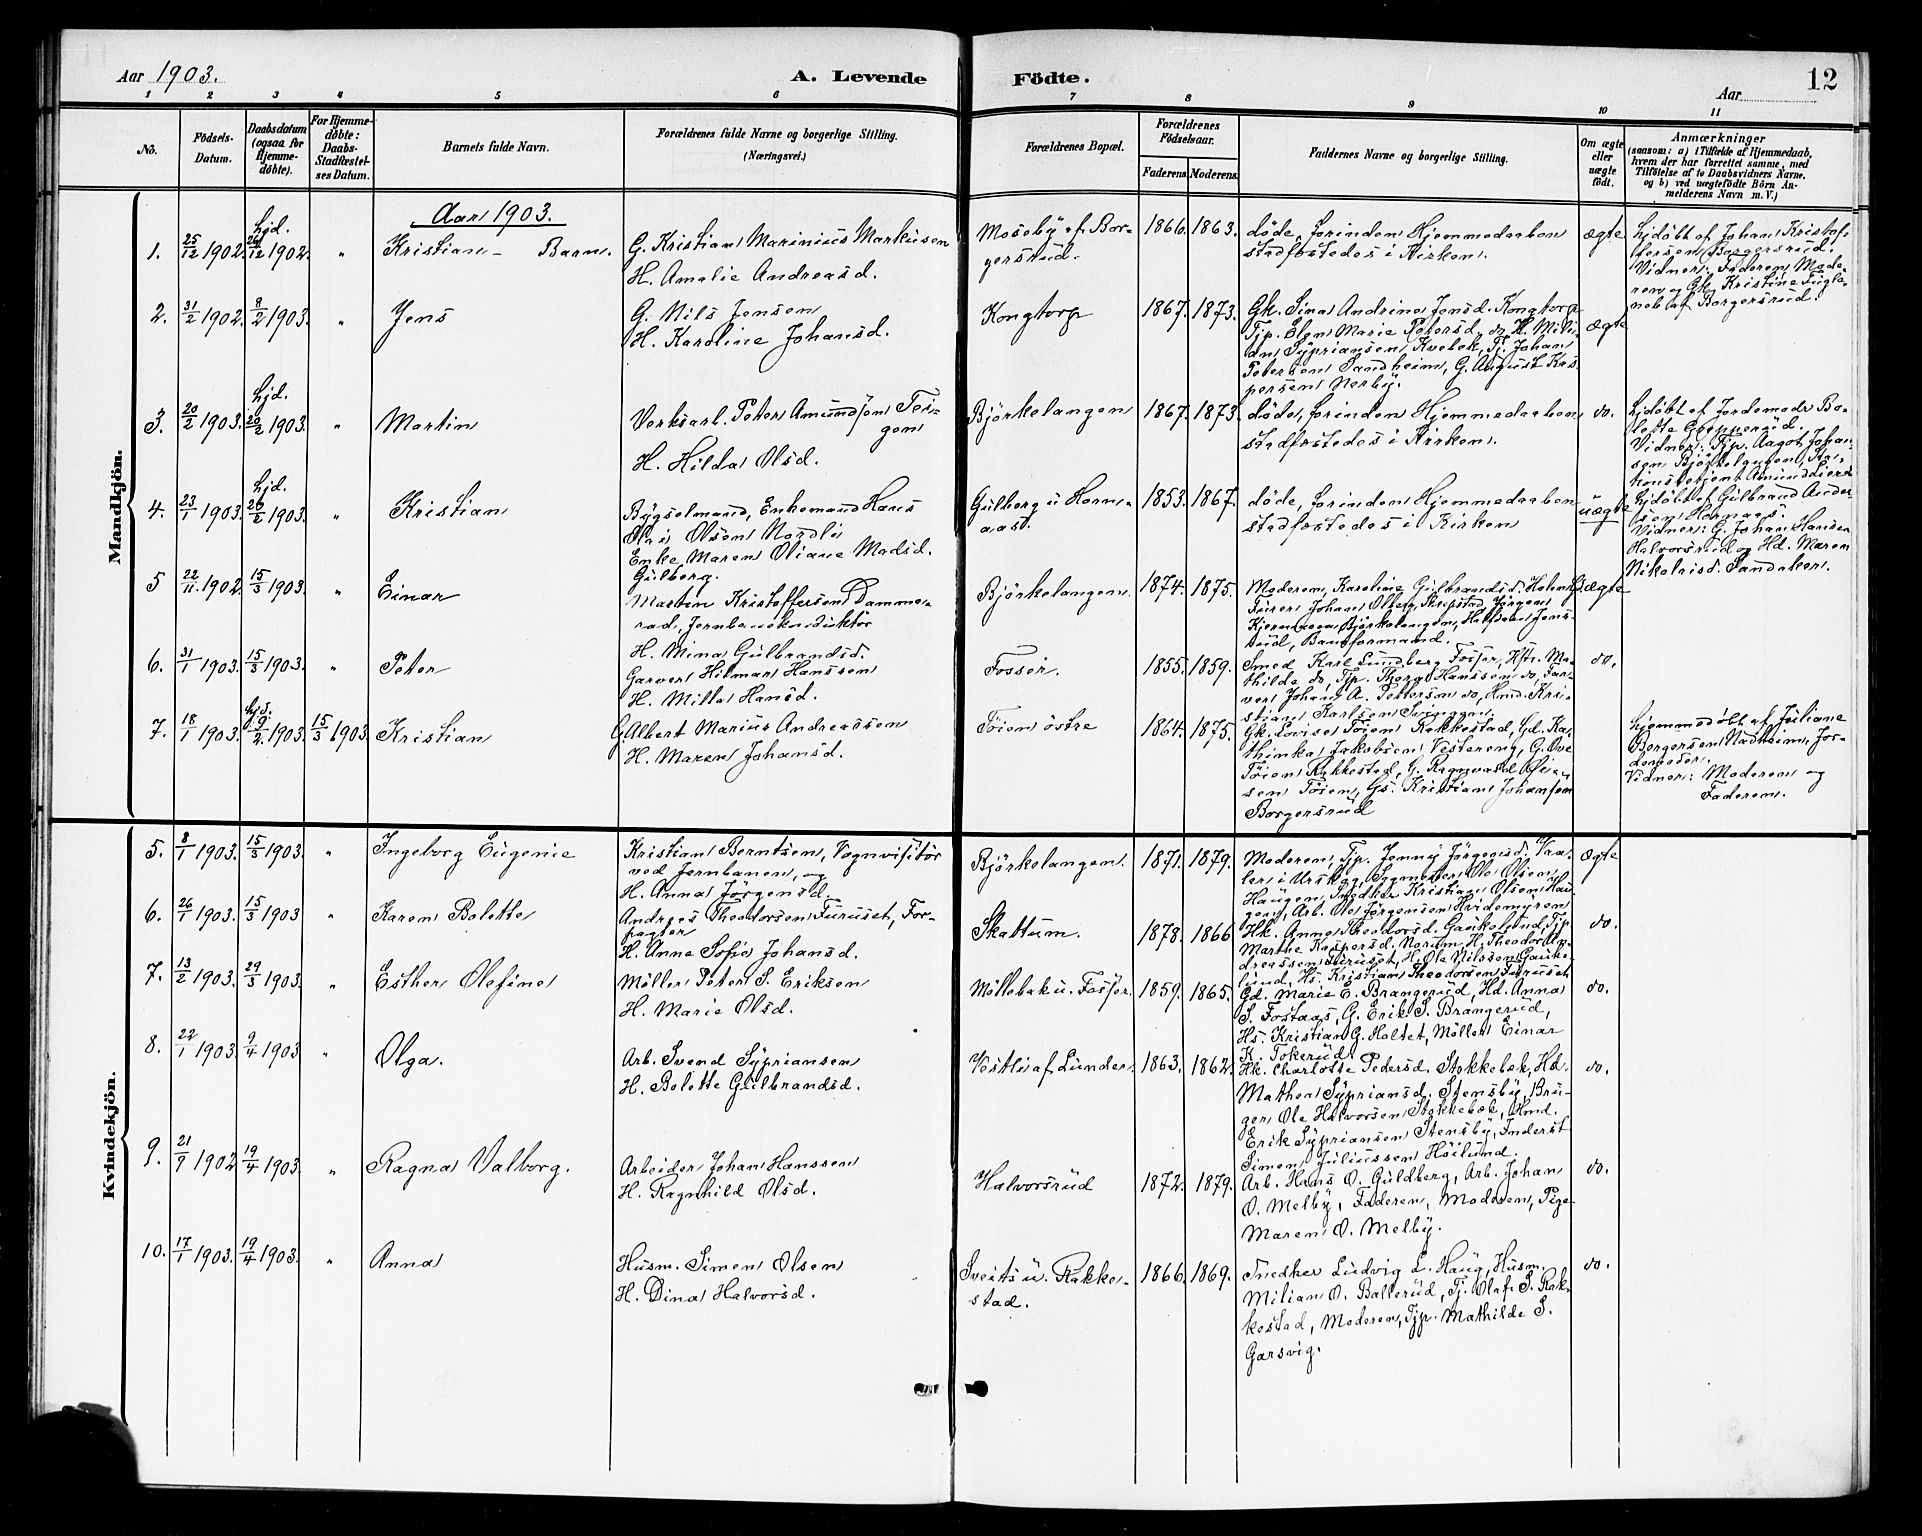 Aar 1903.
A. Levende Födte.
Aar
12
1 2 3 4 5 6 7 8 9 10 11
No.
Födsels-
Datum.
Daabsdatum
(ogsaa for
Hjemme-
döbte).
For Hjemme-
döbte:
Daabs-
Stadfæstel-
ses Datum.
Barnets fulde Navn.
Forældrenes fulde Navne og borgerlige Stilling.
(Næringsvei.)
Forældrenes Bopæl.
Forældrenes
Födselsaar.
Faderens. Moderens.
Faddernes Navne og borgerlige Stilling.
Om ægte
eller
uægte
født.
Anmærkninger
(saasom: a) i Tilfælde af Hjemmedaab,
hvem der har forrettet samme, med
Tilföielse af to Daabsvidners Navne,
og b) ved uægtefödte Börn An-
melderens Navn m. V.)
Mandkjön.
Aar 1903.
1. 25/12 1902. hjd. 26/12 1902. " Kristian - Barn.
G. Kristian Marinius Markusen
H. Amalie Andreasd.
Moseby af Bor-
gersrud.
1866. 1863.
döde, forinden Hjemmedaaben
stadfæstedes i Kirken.
ægte
hjdöbt af Johan Kristof-
fersen Borgersrud.
Vidner: Faderen, Mode-
ren og Gk. Kristine Fugle-
neb af Borgersrud.
2. 31/2 1902. 8/2 1903. " Jens
G. Nils Jensen
H. Karoline Johansd.
Kongtorp
1867. 1873.
Gk. Sina Andrine Jensd. Kongtorp
Tjp. Elen Marie Petersd. do, H. Mili-
an Sypriansen Kvebek, Tj. Johan
Petersen Sandheim, G. August Kas-
persen Nerby.
ægte
3. 20/2 1903. hjd. 20/2 1903. " Martin
Verksarb. Peter Amundsen Tei-
gen
H. Hilda Olsd.
Björkelangen
1867. 1873.
döde, forinden Hjemmedaaben
stadfæstedes i Kirken.
do.
hjdöbt af Jordemoder Bo-
lette
Vidner: Tjp. Aagot Johan-
sen Björkelangen, Sta-
tionsbetjent Amund Lierd
4. 23/1 1903. hjd. 26/2 1903. " Kristian
Bygselmand, Enkemand Hans
Olai Olsen Nordli
Enke Maren Oliane Madsd.
Gulberg.
Gulberg u Horn-
aas.
1853. 1867.
döde, forinden Hjemmedaaben
stadfæstedes i Kirken
uægte
hjdöbt af Gulbrand Ander-
sen Hornaas.
Vidner: G. Johan Hansen
Halvorsrud og Hd. Maren
Nikolaisd. Sandaker.
5 22/11 1902. 15/3 1903. " Einar
Martin Kristoffersen Damme-
rud, Jernbanekonduktör
H. Mina Gulbrandsd.
Björkelangen.
1874. 1875.
Moderen, Karoline Gulbrandsd.
Furer, Johan Olberg, Jörgen
Björkelangen, Halfdan Jens-
rud, Baneformand.
ægte
6. 31/1 1903. 15/3 1903. " Peter
Garver Hilmar Hanssen
H. Milla Hansd.
Fosser.
1855. 1859.
Smed Karl Lundberg Fosser, Hstr. Ma-
thilde do, Tjp. Thora Hanssen do, Far-
ver Johan A. Pettersen do, Hmd. Kri-
stian Karlsen
do.
7. 18/1 1903. hjd. 9/2. 1903. 15/3 1903. Kristian
G. Albert Marius Andreassen
H. Maren Johansd.
Töien östre
1864. 1875.
Gk. Lovise Töien Rakkestad, Gd. Ka-
thinka Jakobsen Vestereng, G. Ove
Töien Rakkestad, G. Ragnvald Ovi-
sen Töien, Gs. Kristian Johansen
Borgersrud
hjemmedöbt af Juliane
Borgersen Nadheim, Jor-
demoder.
Vidner: Moderen og
Faderen.
Kvindekjön.
5. 8/1 1903. 15/3 1903. " Ingeborg Eugenie
Kristian Berntsen, Vognvisitör
ved Jernbanen, og
H. Anna Jörgensd.
Björkelangen.
1871. 1879.
Moderen, Tjp. Jenny Jörgensd. Vaa-
ler i Urskog, Ole Olsen
Haugen, Snedker Kristian Olsen Hau-
gen, Arb. Ole Jörgensen Hvidemyren
ægte
6. 26/1 1903. 15/3 1903 " Karen Bolette
Andreas Theodorsen Furuset, For-
pagter
H. Anne Sofie Johansd.
Skattum.
1878. 1866
Hk. Anne Theodorsd. Gaukelund, Tjp
Marthe Kaspersd. Norum, H. Theodor An-
dreassen Furuset, H. Ole Nilssen Gauke-
lund, Hs. Kristian Theodorsen Furuset
do.
7. 13/2 1903. 29/3 1903. " Esther Olefine
Möller Peter S. Eriksen
H. Marie Olsd.
Möllebak u. Fosser.
1859. 1865.
Gd. Marie E. Brangerud, Hd. Anna
S. Fostaas, G. Erik S. Brangerud,
Hs. Kristian G. Holtet, Möller Einar
K. Tokerud.
do.
8. 22/1 1903. 9/4 1903 " Olga.
Arb. Svend Sypriansen
H. Bolette Gulbrandsd.
Vestli af Lunder.
1863. 1862.
Hk. Charlotte Pedersd. Stokkebæk, Hd.
Mathea Sypriansd. Stensby, Bru-
ger Ole Halvorsen Stokkebæk, Hmd.
Erik Sypriansen Stensby, Inderst
Simen Juliussen Höilund.
do.
9. 21/9 1902 19/4 1903. " Ragna Valborg.
Arbeider Johan Hanssen
H. Ragnhild Olsd.
Halvorsrud
1872. 1879.
Arb. Hans O. Guldberg, Arb. Johan
O. Melby, Faderen, Moderen, Pige
Maren O. Melby.
do.
10. 17/1 1903. 19/4 1903. " Anna
Husm. Simen Olsen
H. Dina Halvorsd.
Sveits u. Rakke-
stad.
1866. 1869.
Snedker Ludvig L. Haug, Husm.
Milian O. Ballerud, Tj. Olaf S. Rak-
kestad, Moderen, Tjp. Mathilde S.
Garsvig.
do.